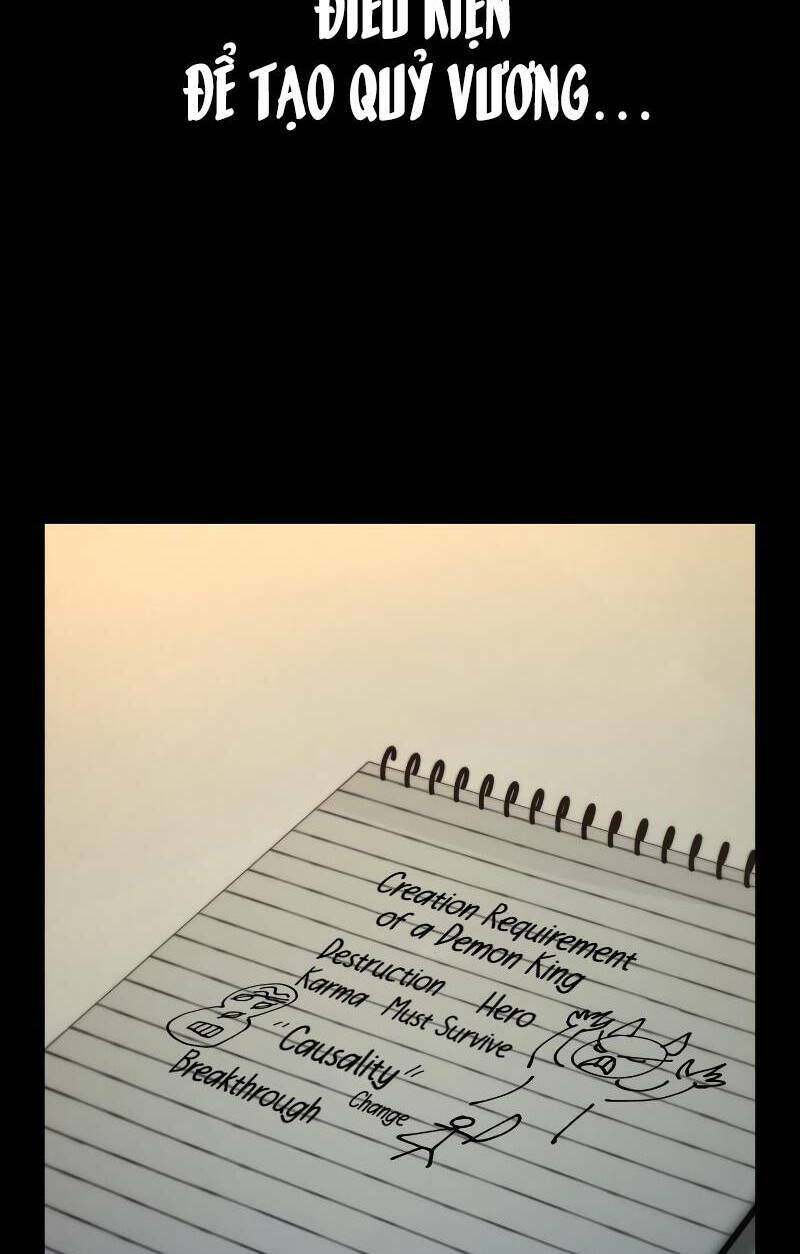 ĐIỀU KIỆN
ĐỂ TẠO QUỶ VƯƠNG...
Creation Requirement
of a Demon King
Destruction Hero
Karma Must Survive
"Causality"
Breakthrough Change